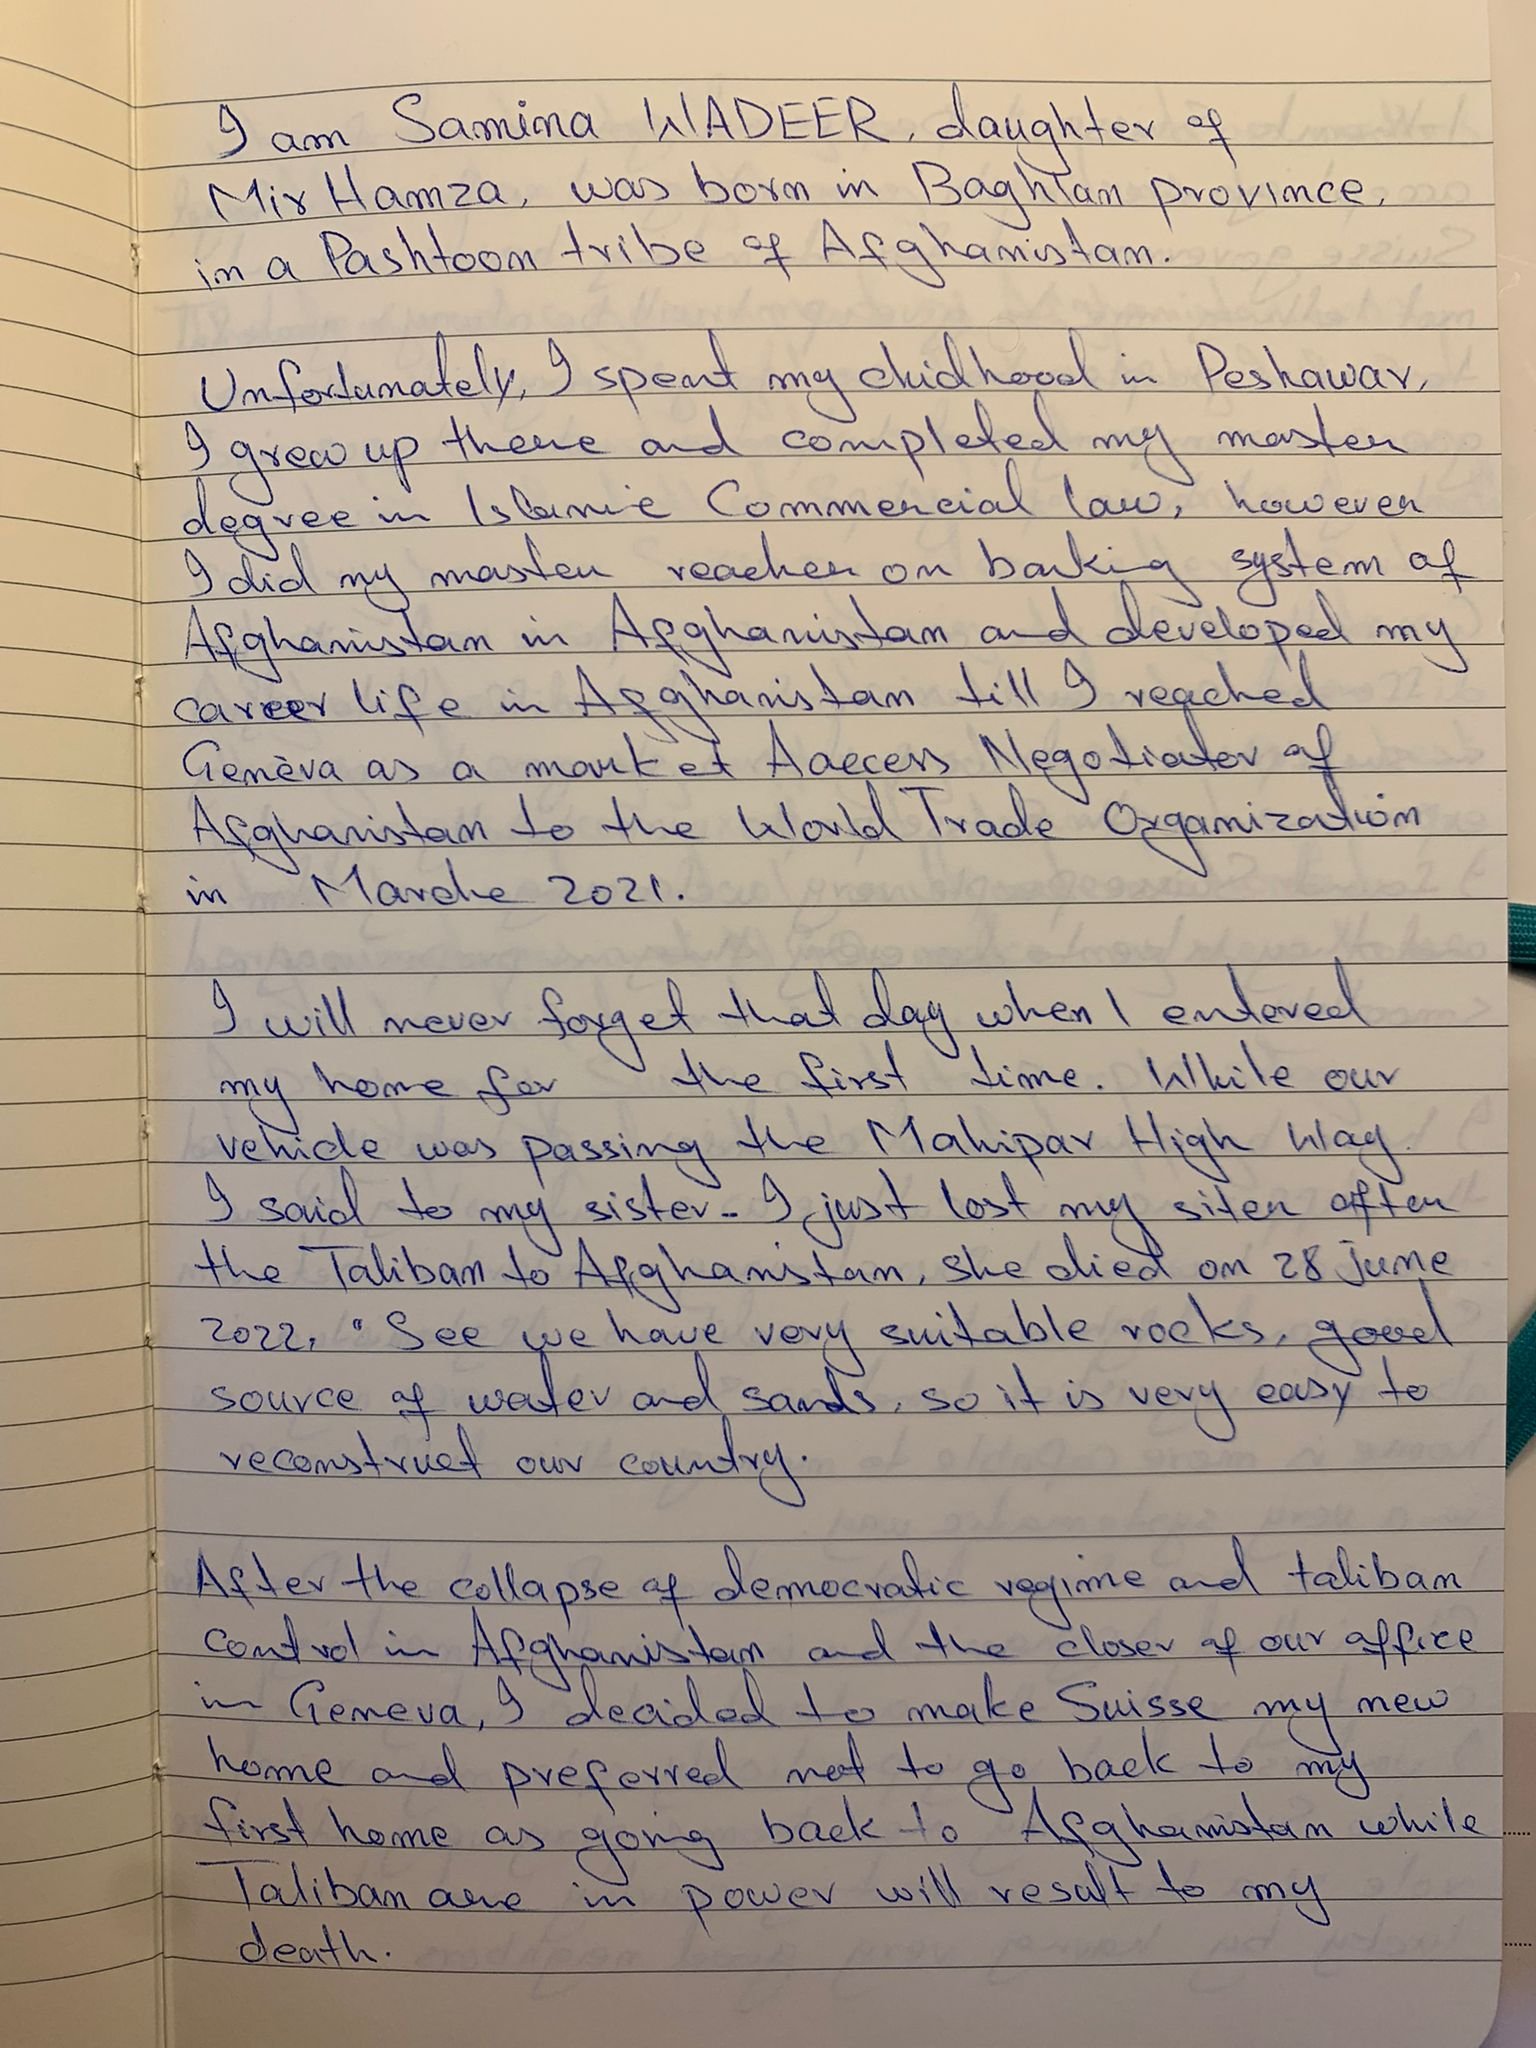 I am Samina WADEER, daughter of
Mir Hamza, was born in Baghlan province,
in a Pashtoon tribe of Afghanistan.
Unfortunately, I spent my chidhood in Peshawar,
I grew up there and completed my master
degree in Islamic Commercial law, however
I did my master reacher on banking system of
Afghanistan in Afghanistan and developed my
career life in Afghanistan till I reached
Genèva as a market Aaecess Negotiator of
Afghanistan to the World Trade Organization
in Marche 2021.
I will never forget that day when I entered
my home for the first time. While our
vehicle was passing the Mahipar High Way.
I said to my sister.. I just lost my siter after
the Taliban to Afghanistan, she died on 28 June
2022, "See we have very suitable rocks, good
source of water and sands, so it is very easy to
reconstruct our country.
After the collapse of democratic regime and taliban
control in Afghanistan and the closer of our office
in Geneva, I decided to make Suisse my new
home and preferred not to go back to my
first home as going back to Afghanistan while
Taliban are in power will result to my
death.